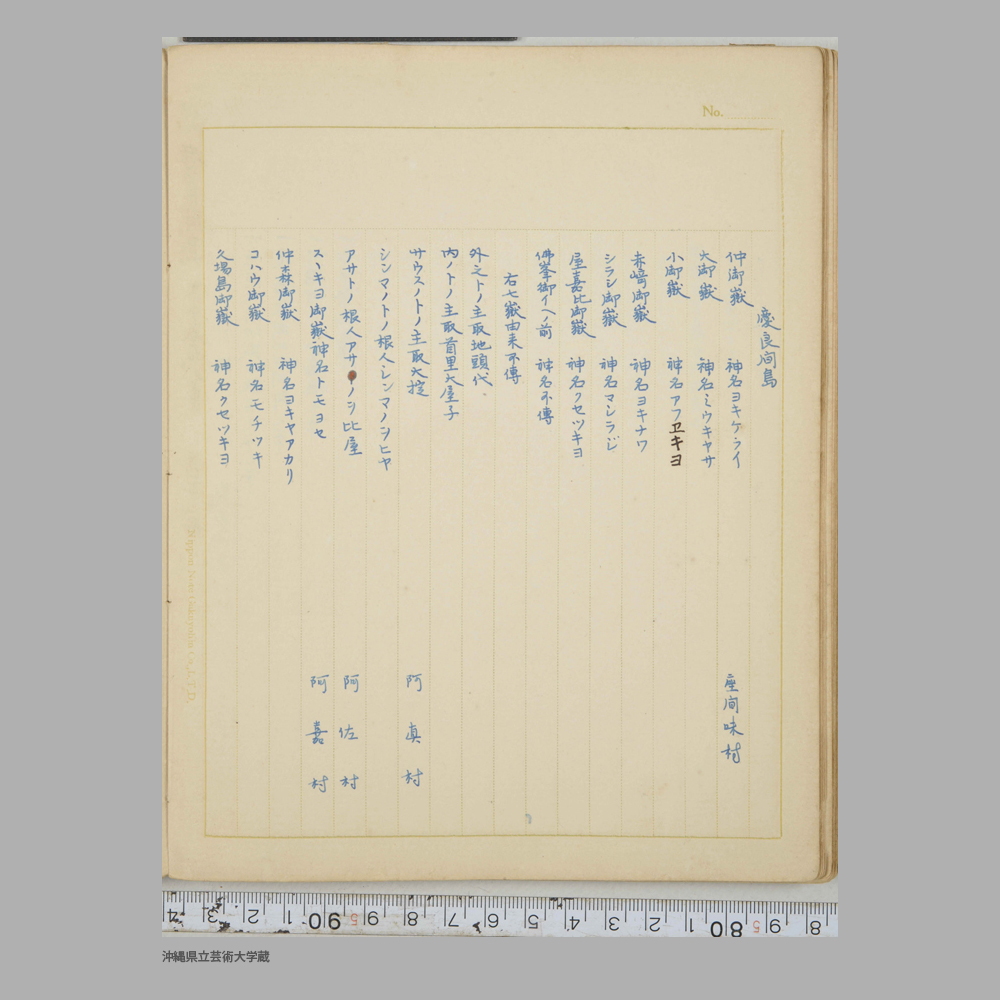 No.
慶良间島
仲御嶽 神名ヨキケライ 座间味村
大御嶽 神名ミウキヤサ
小御嶽 神名アフヱキヨ
赤崎御嶽 神名ヨキナワ
シラシ御嶽 神名マシラジ
屋嘉比御嶽 神名クセツキヨ
佛峯御イヘノ前 神名不傳
右七嶽由来不傳
外之トノ主取地頭代
内ノトノ主取首里大屋子
サウスノトノ主取大掟 阿真村
シンマノトノ根人シンマノシヒヤ
アサトノ根人アサノシ比屋 阿佐村
スヽキヨ御嶽神名トモヨセ 阿嘉村
仲森御嶽 神名ヨキヤアカリ
コハウ御嶽 神名モチツキ
久場島御嶽 神名クセツキヨ
沖縄県立芸術大学蔵